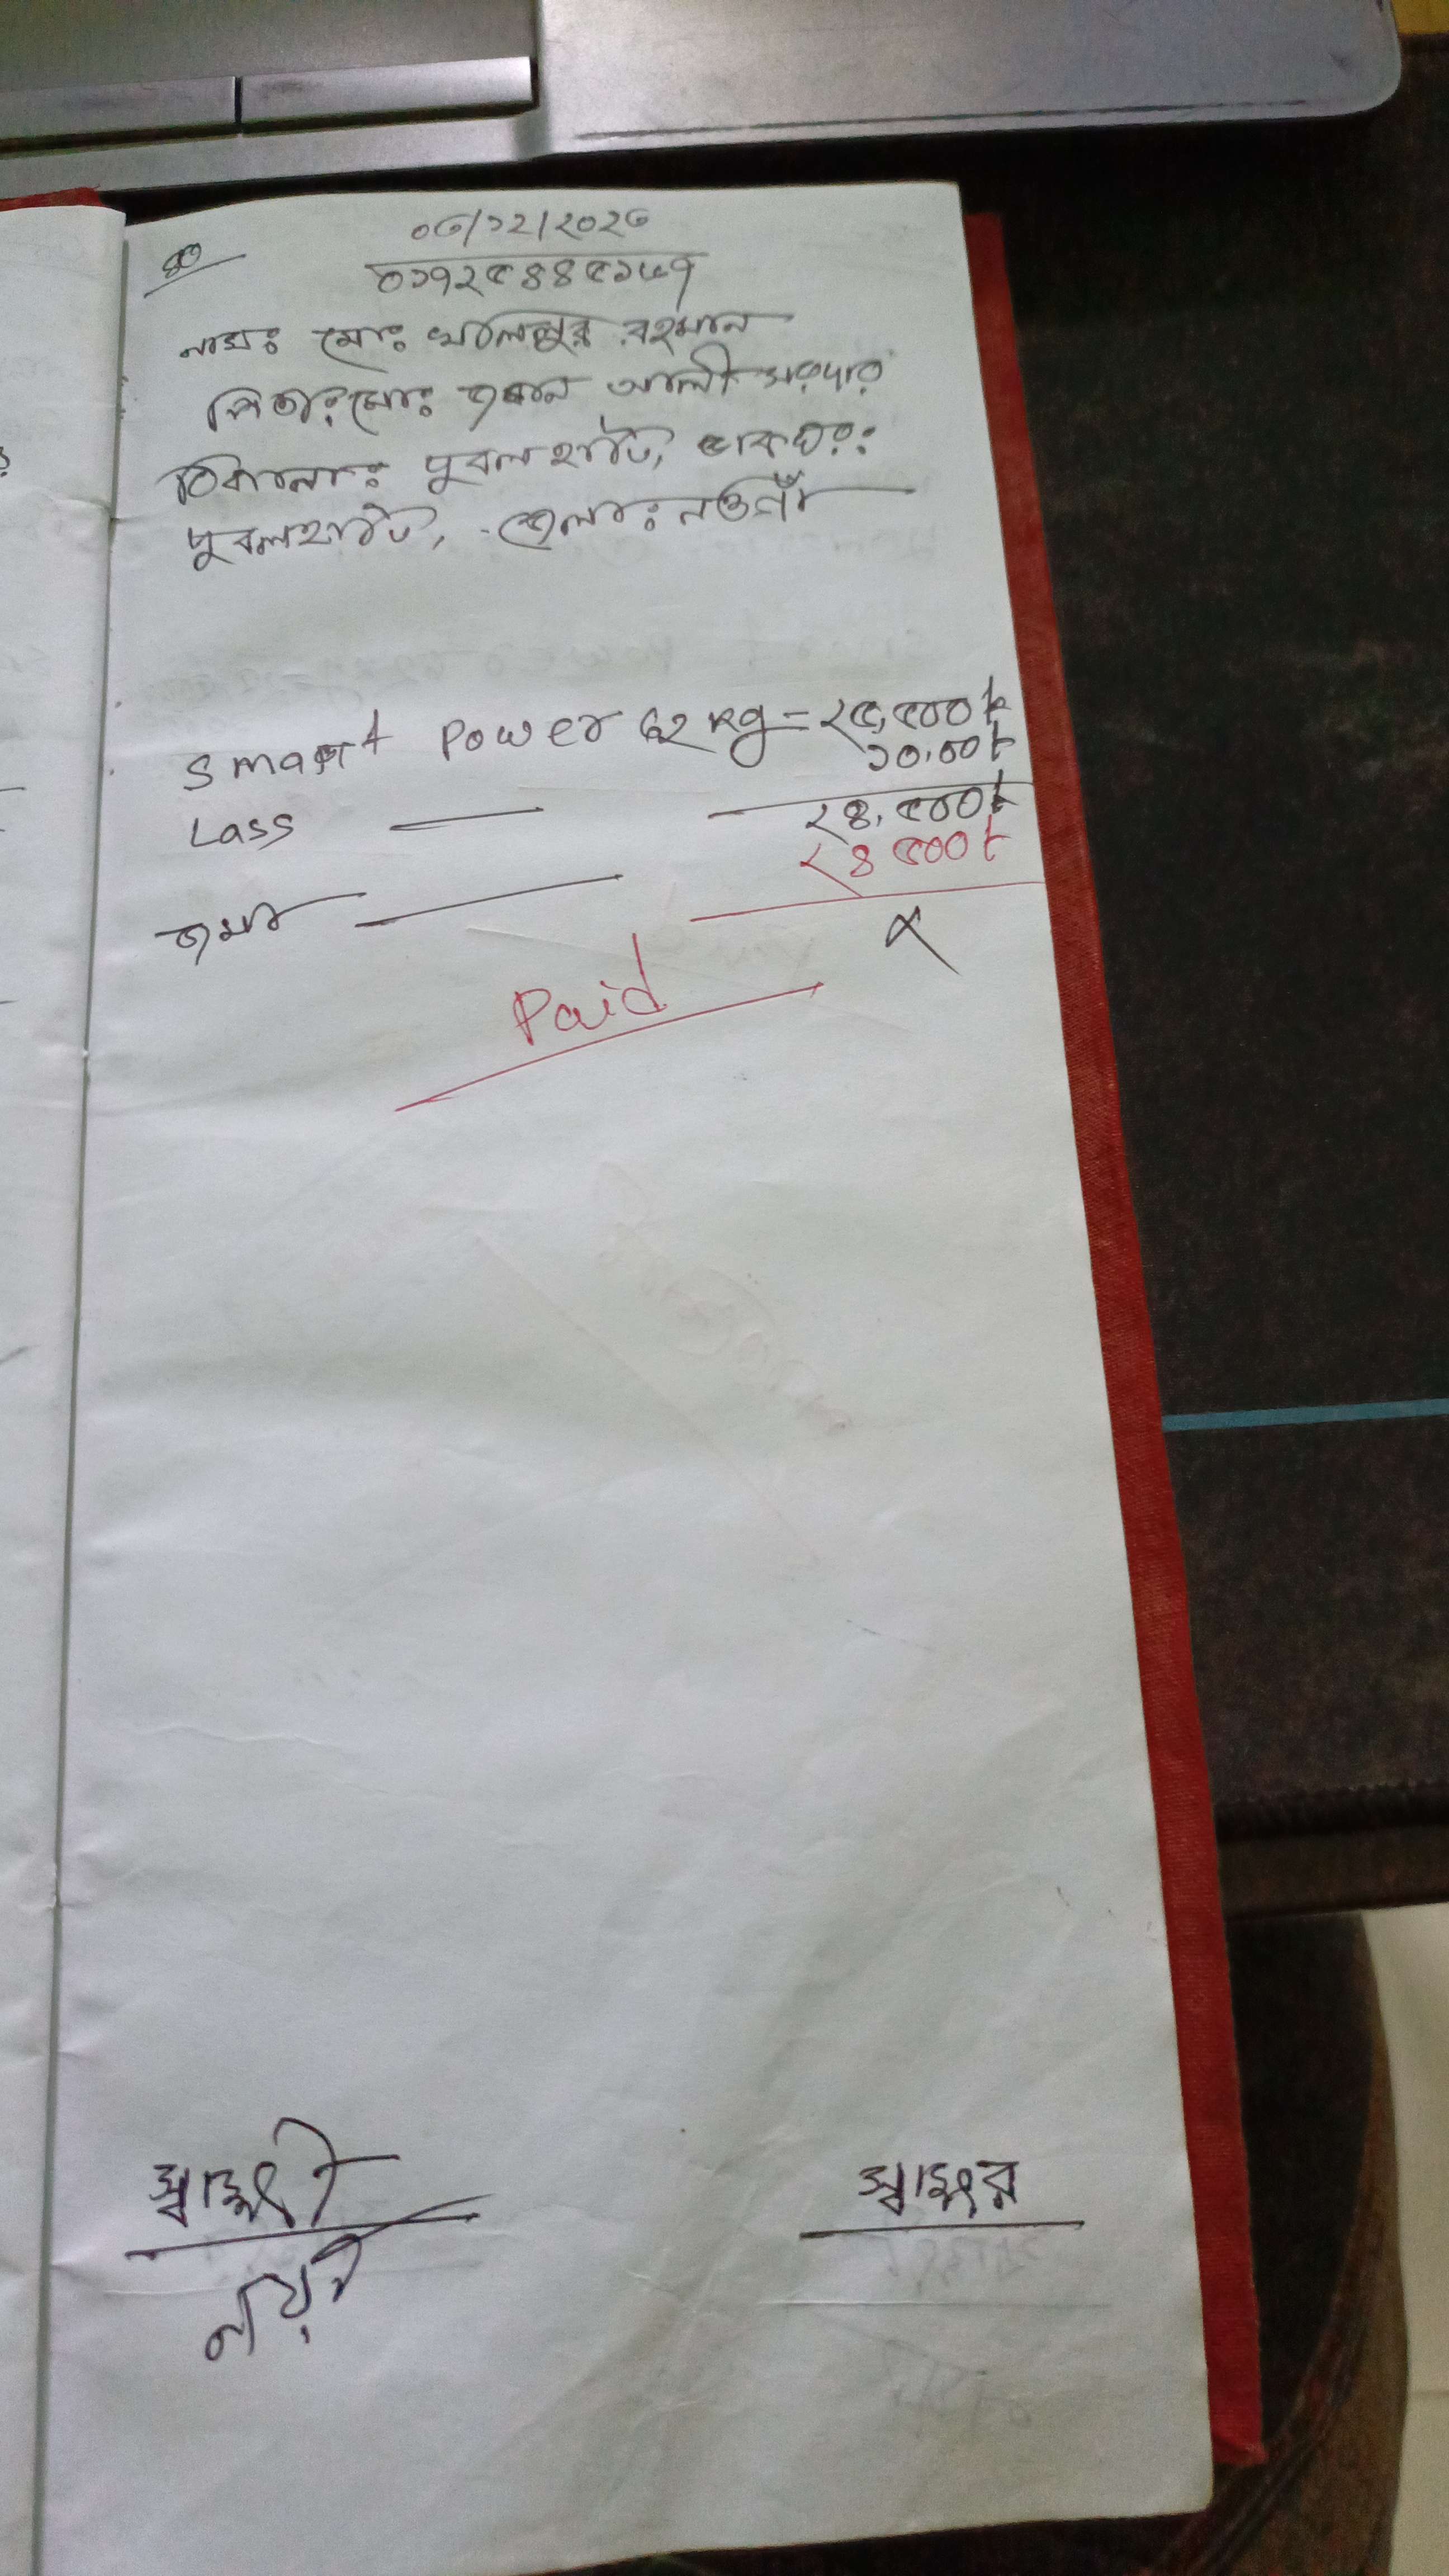 ৪০
০৩/১২/২০২৩
০১৭২৫৪৪৫১৬৭
নামঃ মোঃ খলিলুর রহমান
পিতাঃ মোঃ জান আলী সরদার
ঠিকানাঃ দুবলহাটি, ডাকঘরঃ
দুবলহাটি, জেলাঃ নওগাঁ
Smart Power 62 kg = ২৫,৫০০৳
Lass ১০,০০৳
২৪,৫০০৳
জমা ২৪৫০০৳
Paid
স্বাক্ষী
স্বাক্ষর